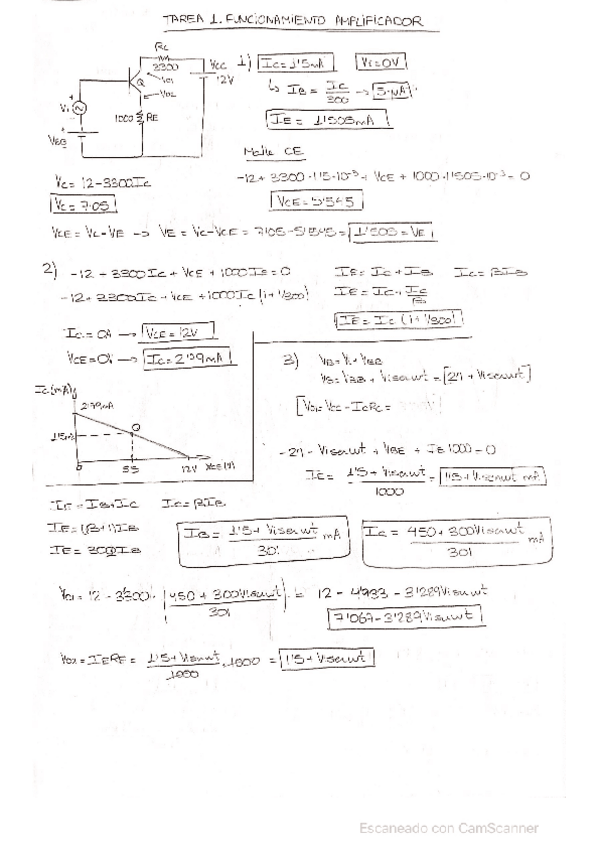 TAREA 1. FUNCIONAMIENTO AMPLIFICADOR
RC
3300
VCC
12V
Q
VO1
VO2
Vi
1000 RE
VBB
1) IC = 1'5mA Vi = 0V
↳ IB = IC/300 → 5 μA
IE = 1'505mA
Malla CE
-12 + 3300·1'5·10⁻³ + VCE + 1000·1'505·10⁻³ = 0
VCE = 5'545
VC = 12 - 3300IC
VC = 7.05
VCE = VC - VE → VE = VC - VCE = 7'05 - 5'545 = 1'505 = VE
2) -12 + 3300IC + VCE + 1000IE = 0
-12 + 3300IC + VCE + 1000IC(1 + 1/300)
IE = IC + IB IC = βIB
IE = IC + IC/β
IE = IC(1 + 1/300)
IC = 0A → VCE = 12V
VCE = 0V → IC = 2'79mA
IC(mA)
2'79mA
1'5mA
Q
5'5
12V
VCE(V)
3) VB = Vi + VBB
VB = VBB + Visenwt = [2'1 + Visenwt]
[VO1 = VCC - ICRC =
-2'1 - Visenwt + VBE + IE·1000 = 0
IE = 1'5 + Visenwt / 1000 = 1'5 + Visenwt mA
IE = IB + IC IC = βIB
IE = (β+1)IB
IE = 301IB
IB = 1'5 + Visenwt / 301 mA
IC = 450 + 300Visenwt / 301 mA
VO1 = 12 - 3300 · (450 + 300Visenwt / 301) = 12 - 4'933 - 3'289Visenwt
7'067 - 3'289Visenwt
VO2 = IERE = 1'5 + Visenwt / 1000 · 1000 = 1'5 + Visenwt
Escaneado con CamScanner